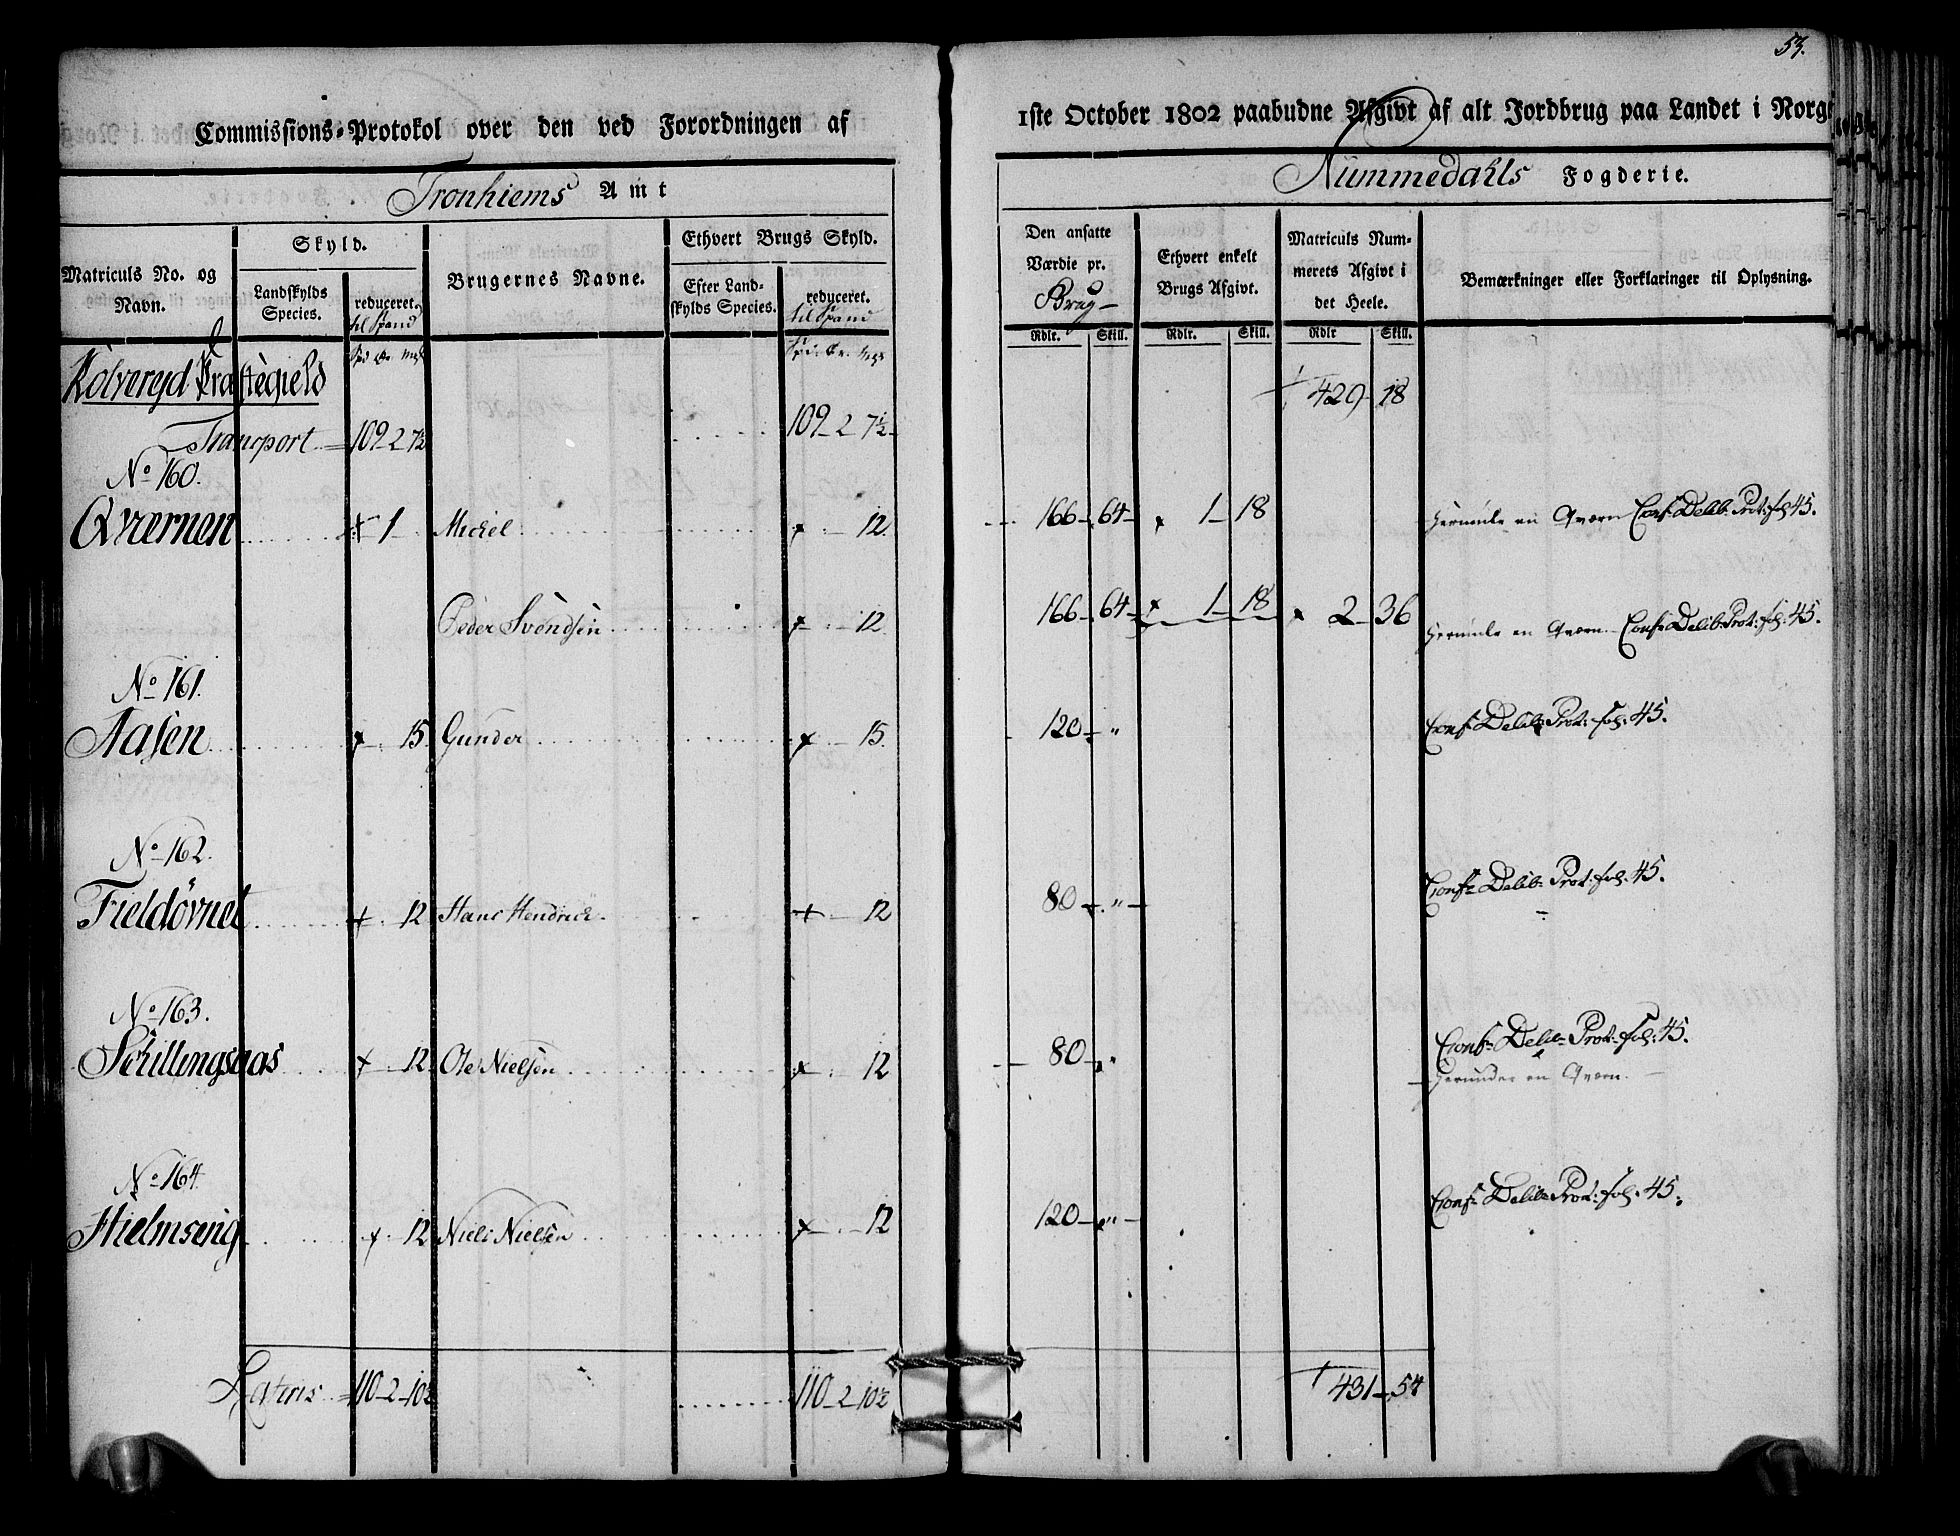 53.
Commissions-Protokol over den ved Forordningen af 1ste October 1802 paabudne Afgivt af alt Jordbrug paa Landet i Norge
Tronhiems Amt Nummedahls Fogderie.
Matriculs No. og Navn.
Skyld.
Landskylds Species.
reduceret. til Spand
Brugernes Navne.
Ethvert Brugs Skyld.
Efter Landskylds Species.
reduceret. til Spand
Den ansatte Værdie pr. Brug
Ethvert enkelt Brugs Afgivt.
Matriculs Nummerets Afgivt i det Heele.
Bemærkninger eller Forklaringer til Oplysning.
Rdlr. Skill. Rdlr. Skill. Rdlr Skill.
Kolvereyd Præstegield
429 18
Transport 109 2 7½ 109 2 7½
No 160.
Qværnen 1 Michel 12. 166 64 1 18 herunder en Qværn Conf Delib: Prot: fol 45.
Peder Svendsen 12. 166 64 1 18 2 36 herunder en Qværn Conf Delib: Prot: fol: 45.
No 161.
Aasen 15 Gunder 15. 120 " Conf Delib: Prot: fol: 45.
No 162.
Fieldövnet 12 Hans Hendrich 12 80 " Conf Delib: Prot: fol: 45.
No 163.
Schillingsaas 12 Ole Nielsen 12 80 " Conf Delib: Prot: fol: 45.
herunder en Qværn.
No 164.
Hielmseng 12 Niels Nielsen 12 120 " Conf Delib: Prot: fol: 45.
Lateris 110 2 10½ 110 2 10½ 431 54